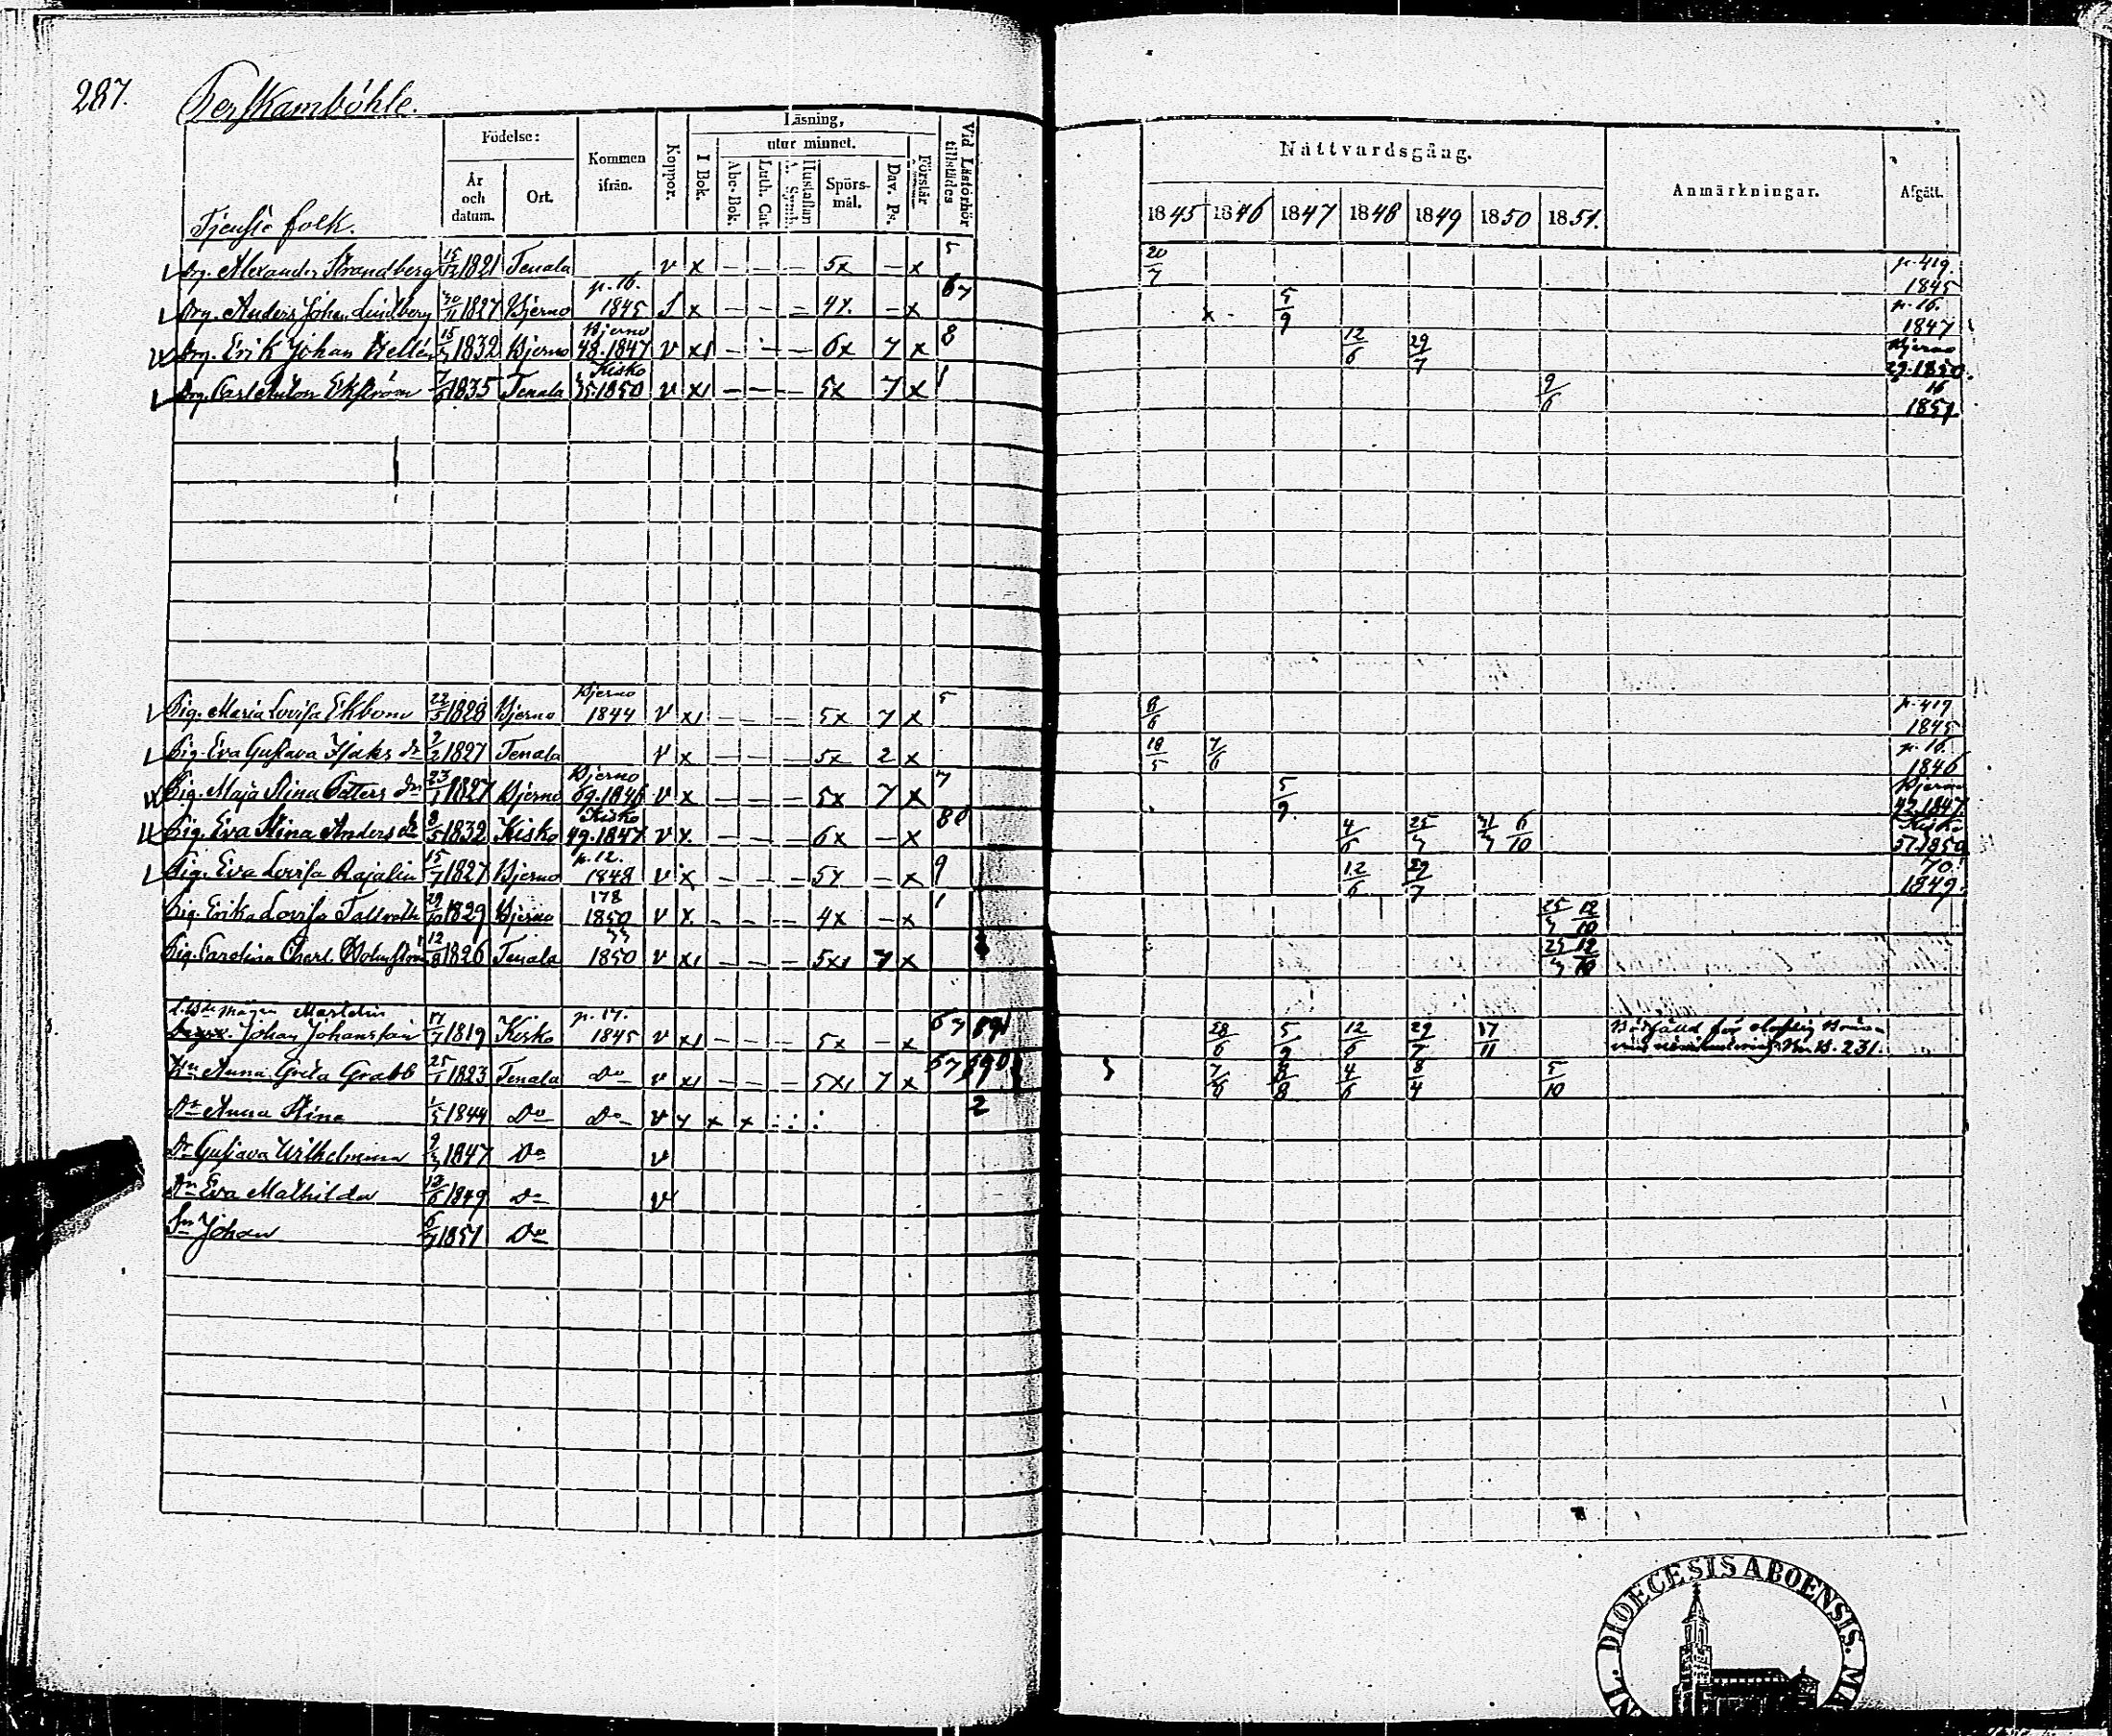 287.
Perskamböhle.
Tjenste folk.
Födelse:
År och datum.
Ort.
Kommen ifrån.
Koppor.
Läsning,
I Bok.
utur minnet.
Abc-Bok.
Luth. Cat.
Hustaflan
Spörsmål.
Dav. Ps.
Förstår
Vid Läsförhör tillstädes
Nattvardsgång.
1845 1846 1847 1848 1849 1850 1851.
Anmärkningar.
Afgått.
Drg. Alexander Strandberg 1821 Tenala v x - - - 5x - x 5 20/7 p. 419. 1845
Drg. Anders Johan Lindberg 1827 Bjerno p. 16. 1845 x - - - 4x. - x 67 x - 5/9 p. 16. 1847
Drg. Erik Johan Hellén 1832 Bjerno Bjerno 48.1847 v x1 - - - 6x 7 x 8 12/6 29/7 Bjerno 29.1850.
Drg. Carl Anton Ekström 1835 Tenala Kisko 1850 v x1 - - - 5x 7 x 1 9/6 16 1851
Pig. Maria Lovisa Ekbom 22/5 1828 Bjerno Bjerno 1844 v x1 - - - 5x 7 x 5 8/6 p. 419 1845
Pig. Eva Gustava Isaks dr 2/2 1827 Tenala v x - - - 5x 2 x 18/5 7/6 p. 16. 1846
Pig. Maja Stina Petters dr 23/1 1827 Bjerno Bjerno 69.1846 v x - - - 5x 7 x 7 5/9 Bjerno 42.1847.
Pig. Eva Stina Anders dr 8/5 1832 Kisko Kisko 49.1847 v x. - - - 6x - x 80 4/6 6/10 Kisko 57.1850
Pig. Eva Lovisa Rajalin 15/7 1827 Bjerno p. 12. 1848 v x - - - 5x - x 9 12/6 29/7 70. 1849.
Pig. Erika Lovisa Tallroth 29/10 1829 Bjerno 178 1850 v x - - - 4x - x 1 12/10
Pig. Carolina Charl. 12/8 1826 Tenala 1850 v x1 - - - 5x1 7 x 12/10
Mågen Marldin
Johan Johansson 17/7 1819 Kisko p. 17. 1845 v x1 - - - 5x - x 67 891 28/6 5/9 12/6 29/7 17/11 231.
Hu Anna Greta Grabb 25/1 1823 Tenala Do v x1 - - - 5x1 7 x 7/6 8/8 4/6 8/4 5/10
Dr Anna Stina 1/5 1844 Do Do v x x x 2
Dr Gustava Wilhelmina 1847 Do v
Dr Eva Mathilda 12/6 1849 Do v
Sn Johan 6/7 1851 Do
DIOECESIS ABOENSIS.